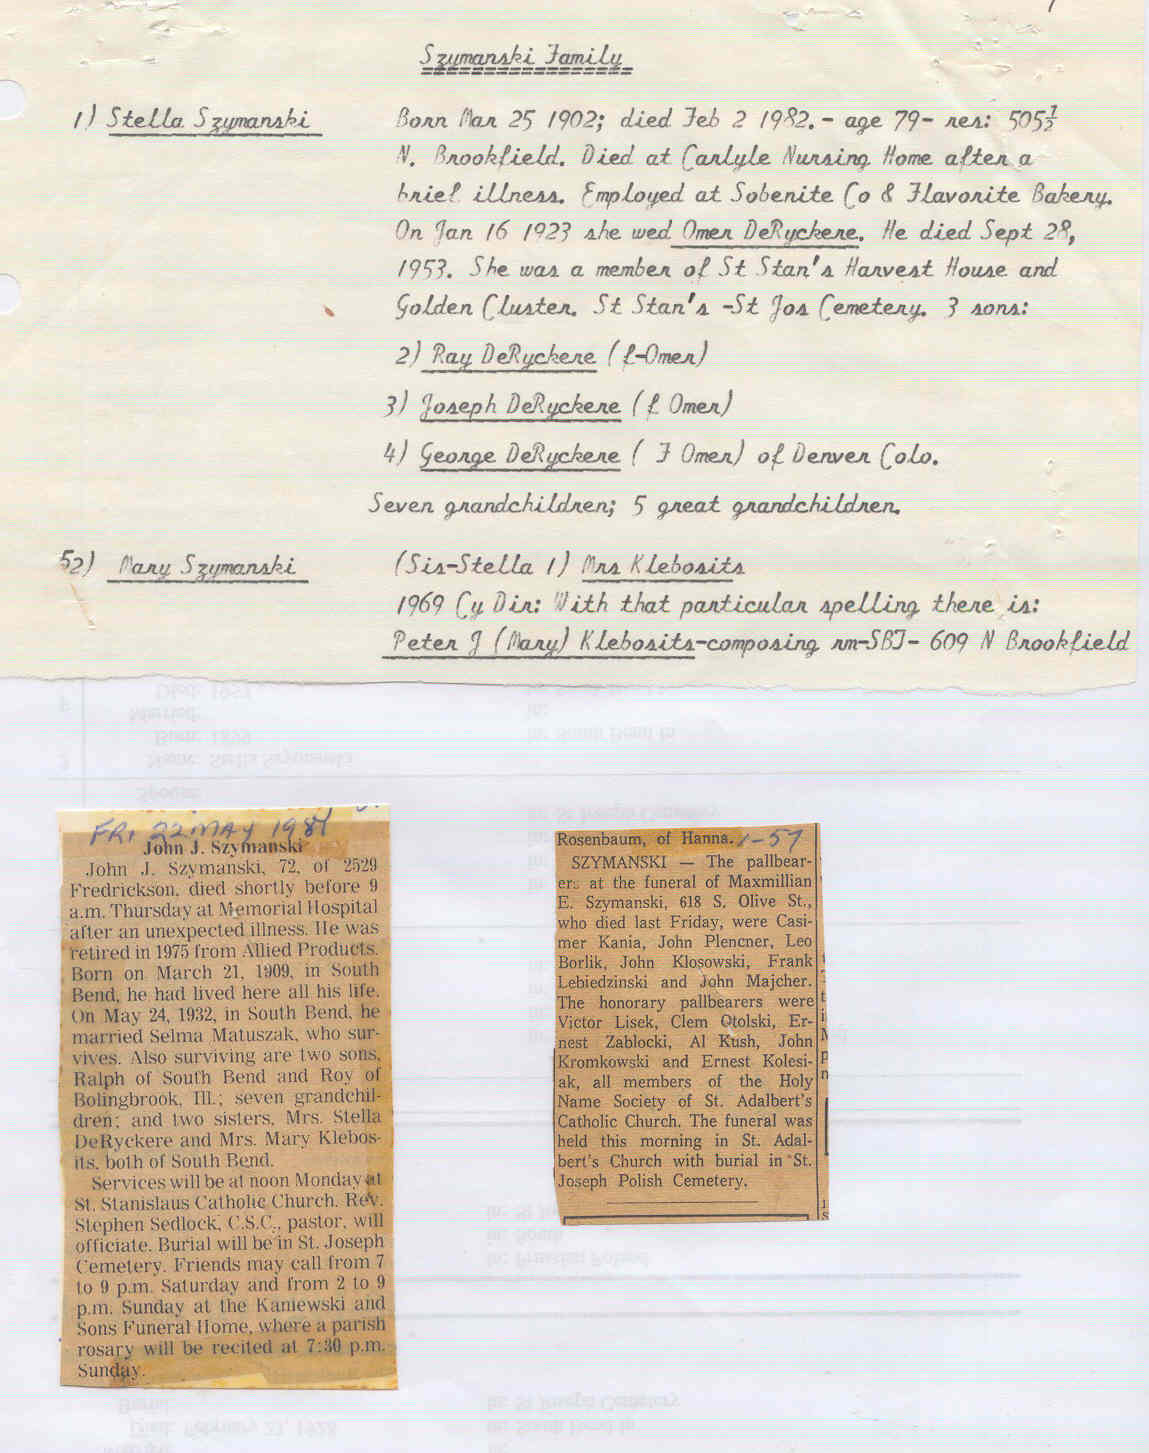 Szymanski Family
1) Stella Szymanski Born Mar 25 1902; died Feb 2 1982. - age 79- res: 505½
N. Brookfield. Died at Carlyle Nursing Home after a
brief illness. Employed at Sobenite Co & Flavorite Bakery.
On Jan 16 1923 she wed Omer DeRyckere. He died Sept 28,
1953. She was a member of St Stan's Harvest House and
Golden Cluster. St Stan's -St Jos Cemetery. 3 sons:
2) Ray DeRyckere (f-Omer)
3) Joseph DeRyckere (f Omer)
4) George DeRyckere ( F Omer) of Denver Colo.
Seven grandchildren; 5 great grandchildren.
52) Mary Szymanski (Sis-Stella 1) Mrs Klebosits
1969 Cy Dir: With that particular spelling there is:
Peter J (Mary) Klebosits-composing rm-SBT- 609 N Brookfield
FRI 22 MAY 1981
John J. Szymanski
John J. Szymanski, 72, of 2529
Fredrickson, died shortly before 9
a.m. Thursday at Memorial Hospital
after an unexpected illness. He was
retired in 1975 from Allied Products.
Born on March 21, 1909, in South
Bend, he had lived here all his life.
On May 24, 1932, in South Bend, he
married Selma Matuszak, who sur-
vives. Also surviving are two sons,
Ralph of South Bend and Roy of
Bolingbrook, Ill.; seven grandchil-
dren; and two sisters, Mrs. Stella
DeRyckere and Mrs. Mary Klebos-
its, both of South Bend.
Services will be at noon Monday at
St. Stanislaus Catholic Church. Rev.
Stephen Sedlock, C.S.C., pastor, will
officiate. Burial will be in St. Joseph
Cemetery. Friends may call from 7
to 9 p.m. Saturday and from 2 to 9
p.m. Sunday at the Kaniewski and
Sons Funeral Home, where a parish
rosary will be recited at 7:30 p.m.
Sunday.
Rosenbaum, of Hanna. -57
SZYMANSKI — The pallbear-
ers at the funeral of Maxmillian
E. Szymanski, 618 S. Olive St.,
who died last Friday, were Casi-
mer Kania, John Plencner, Leo
Borlik, John Klosowski, Frank
Lebiedzinski and John Majcher.
The honorary pallbearers were
Victor Lisek, Clem Otolski, Er-
nest Zablocki, Al Kush, John
Kromkowski and Ernest Kolesi-
ak, all members of the Holy
Name Society of St. Adalbert's
Catholic Church. The funeral was
held this morning in St. Adal-
bert's Church with burial in St.
Joseph Polish Cemetery.